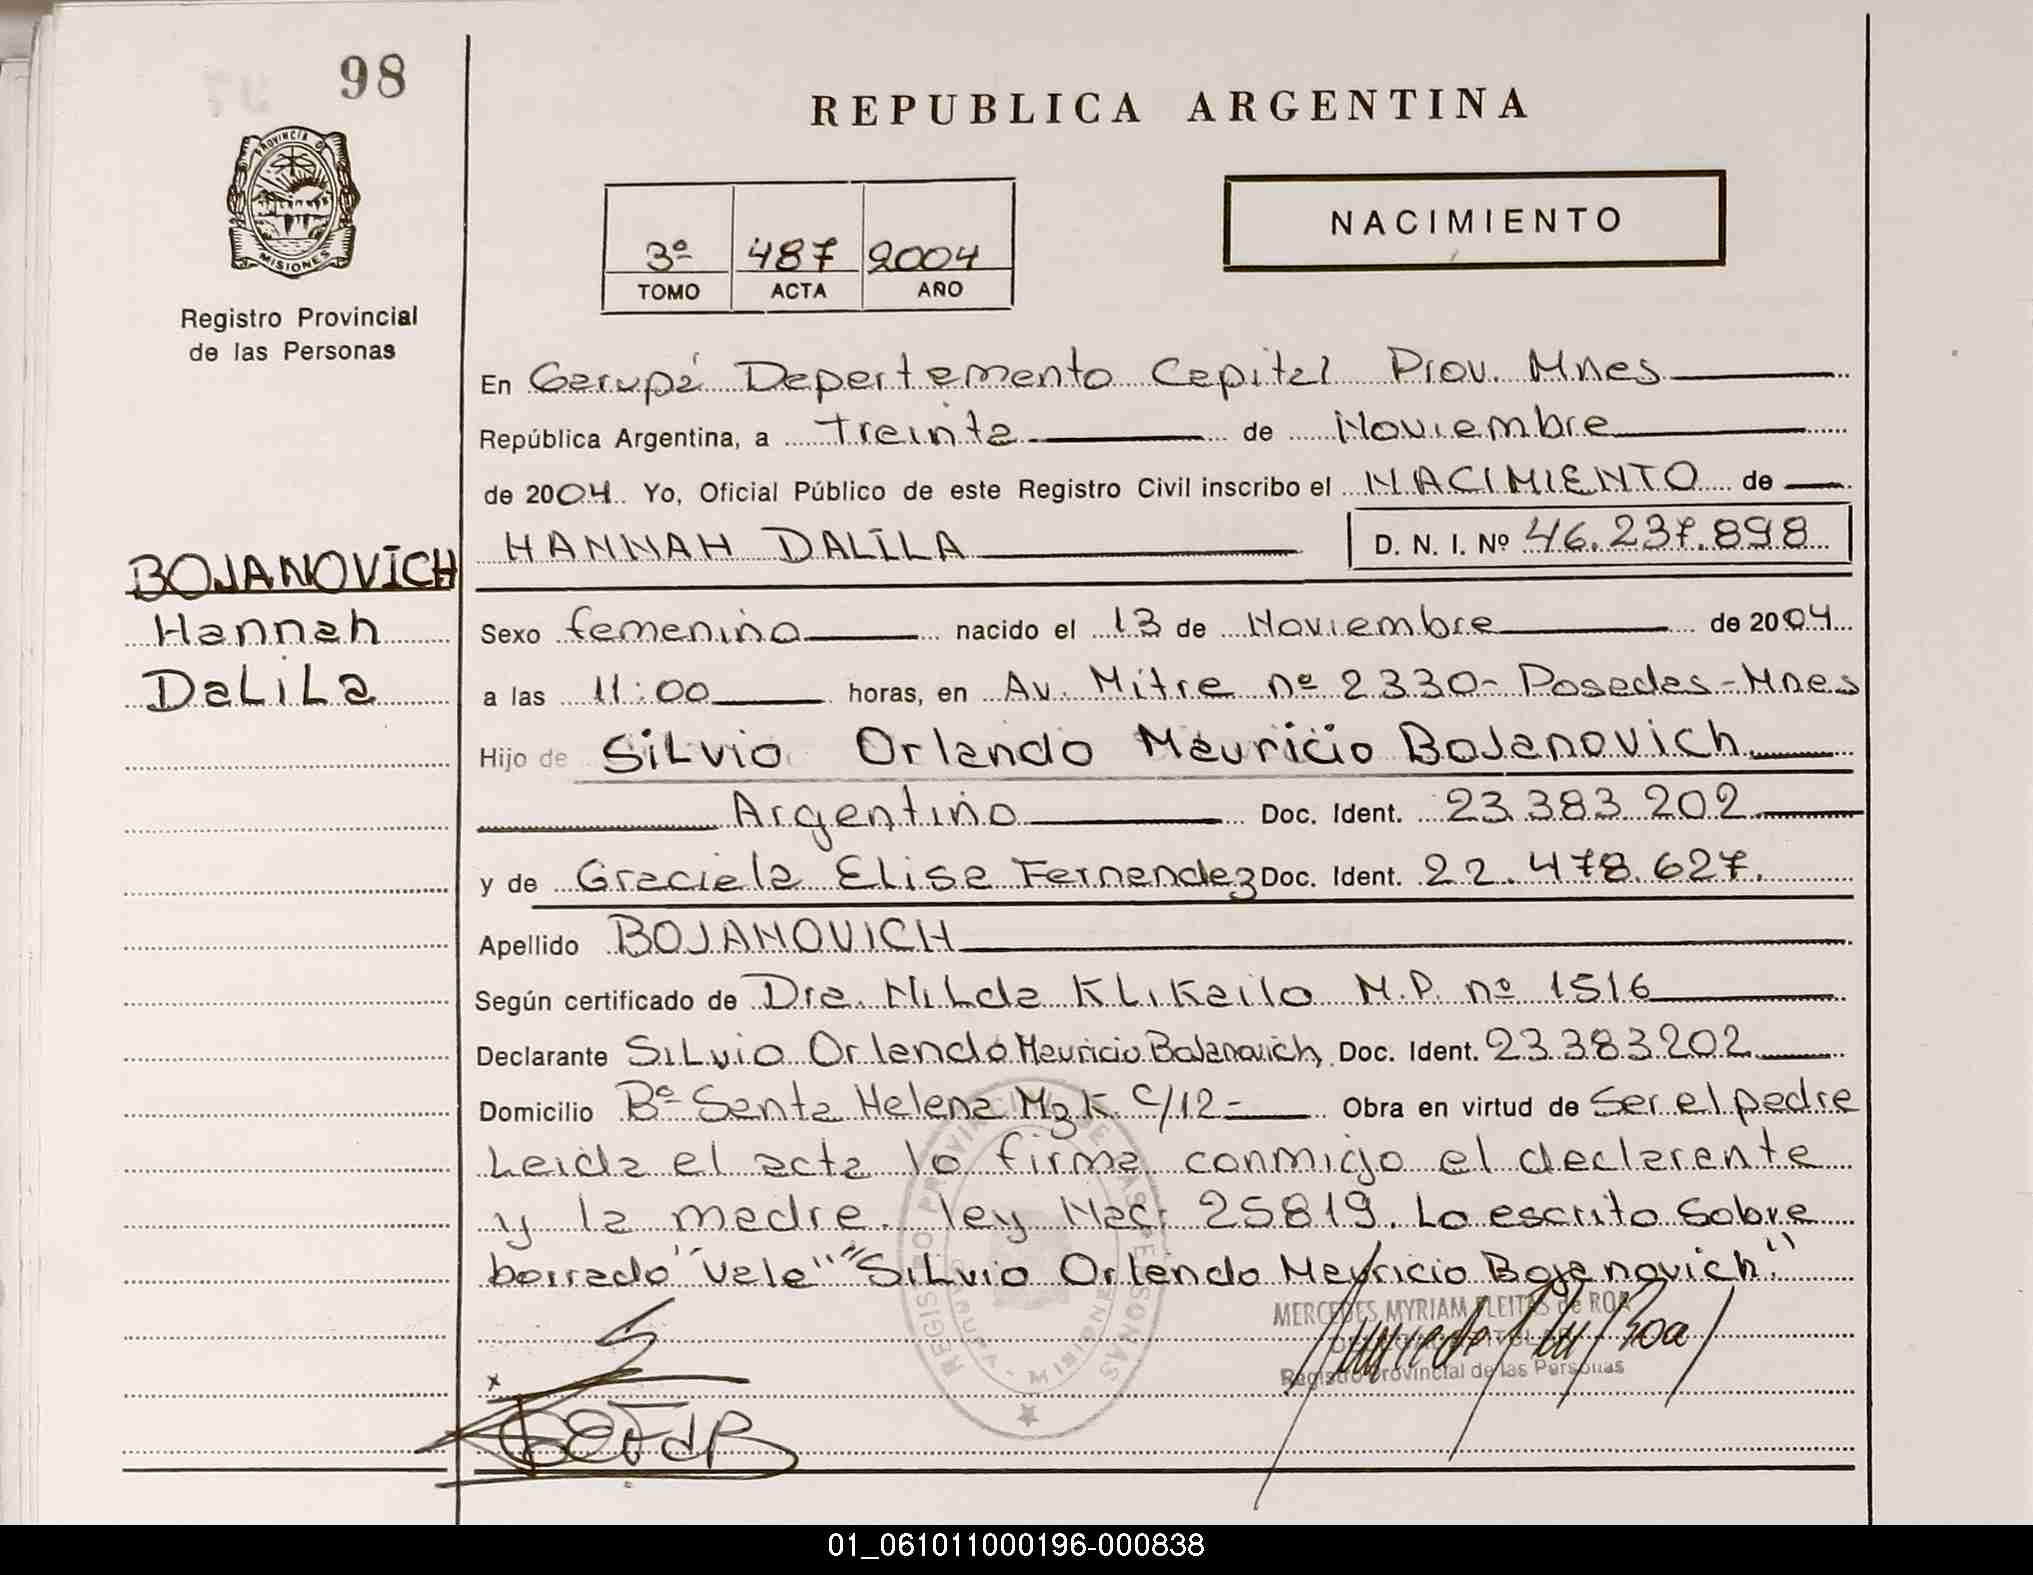 98
REPUBLICA ARGENTINA
PROVINCIA D
MISIONES
Registro Provincial
de las Personas
NACIMIENTO
3º 487 2004
TOMO ACTA AÑO
En Garupá Departamento Capital Prov. Mnes
República Argentina, a Treinta de Noviembre
de 2004. Yo, Oficial Público de este Registro Civil inscribo el NACIMIENTO de
HANNAH DALILA D. N. I. Nº 46.237.898
BOJANOVICH
Hannah
DaLiLa
Sexo femenino nacido el 13 de Noviembre de 2004
a las 11:00 horas, en Av. Mitre nº 2330- Posadas - Mnes
Hijo de SiLvio Orlando Mauricio Bojanovich
Argentino Doc. Ident. 23.383.202
y de Graciela Elisa Fernandez Doc. Ident. 22.478.627.
Apellido BOJANOVICH
Según certificado de Dra. NiLda KLiKailo M.P. nº 1516
Declarante SiLvio Orlando Mauricio Bojanovich Doc. Ident. 23.383.202
Domicilio Bº Santa Helena Mz K. C/12- Obra en virtud de Ser el padre
Leida el acta lo firma conmigo el declarante
y la madre. ley Nac. 25819. Lo escrito sobre
borrado "Vale" "SiLvio Orlando Mauricio Bojanovich"
REGISTRO PROVINCIAL DE LAS PERSONAS
MERCEDES MYRIAM FLEITAS de ROA
Registro Provincial de las Personas
x
01_061011000196-000838